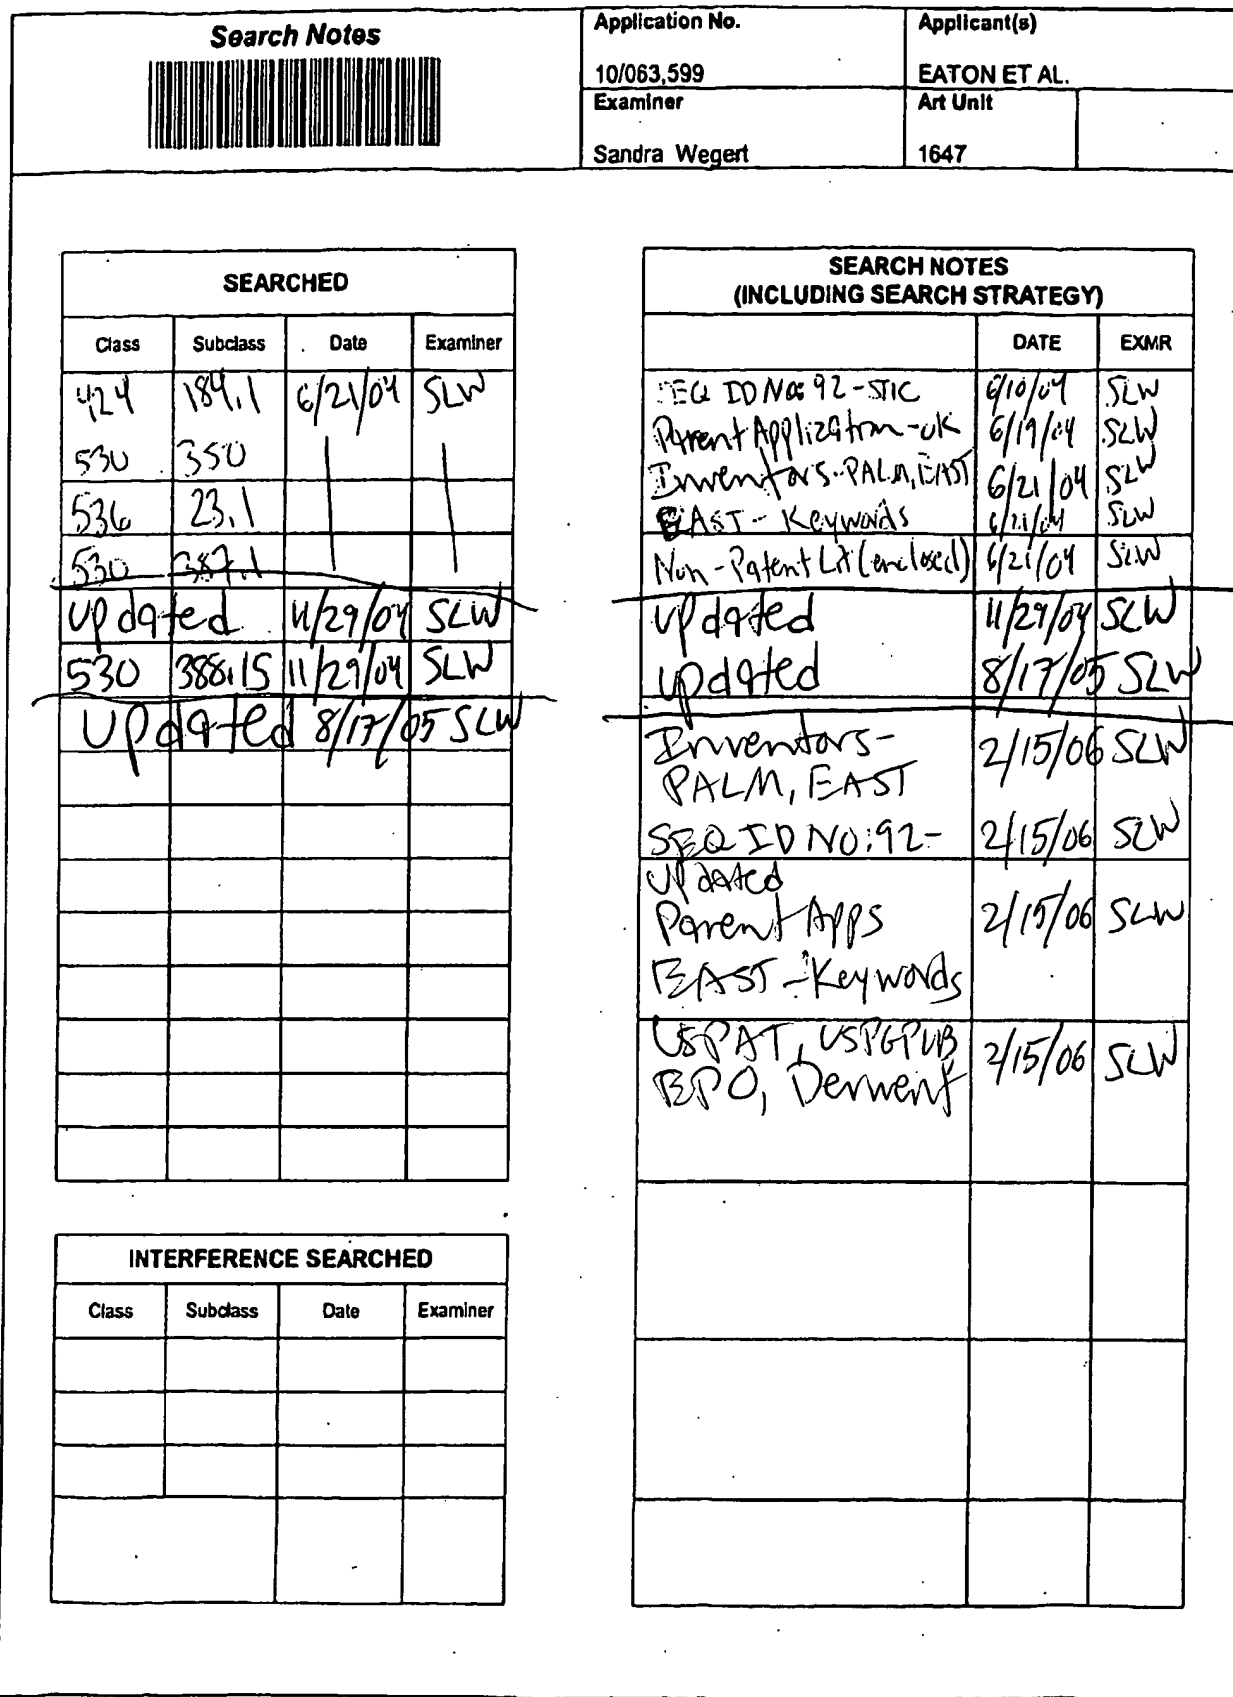 Search Notes
Application No.
Applicant(s)
10/063,599
EATON ET AL.
Examiner
Art Unit
Sandra Wegert
1647
SEARCHED
Class Subclass Date Examiner
424 184.1 6/21/04 SLW
530 350
536 23.1
530 387.1
updated 11/29/04 SLW
530 388.15 11/29/04 SLW
Updated 8/17/05 SLW
INTERFERENCE SEARCHED
Class Subclass Date Examiner
SEARCH NOTES
(INCLUDING SEARCH STRATEGY)
DATE EXMR
SEQ ID No: 92 - STIC 6/10/04 SLW
Parent Application - ok 6/19/04 SLW
Inventors - PALM, EAST 6/21/04 SLW
EAST - Keywords 6/21/04 SLW
Non-Patent Lit (enclosed) 6/21/04 SLW
updated 11/29/04 SLW
updated 8/17/05 SLW
Inventors- 2/15/06 SLW
PALM, EAST
SEQ ID NO: 92- 2/15/06 SLW
updated
Parent Apps 2/15/06 SLW
EAST - Keywords
USPAT, USPGPUB 2/15/06 SLW
EPO, Derwent